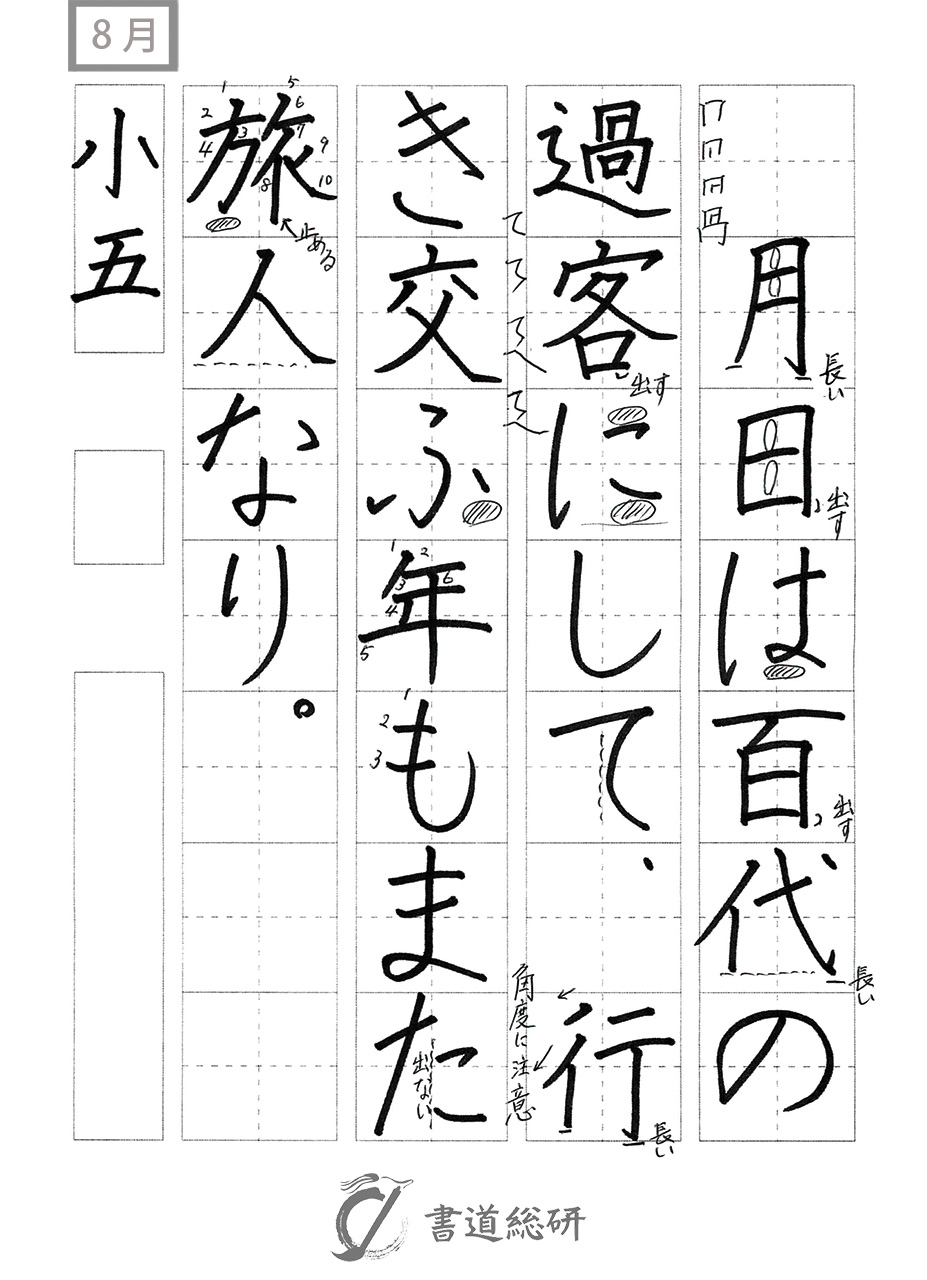 8月
月日は百代の
長い
出す
出す
長い
過客にして、行
出す
長い
き交ふ年もまた
角度に注意
出ない
旅人なり。
1 2 3 4 5 6 7 8 9 10
止める
1 2 3 4 5 6
1 2 3
小五
書道総研